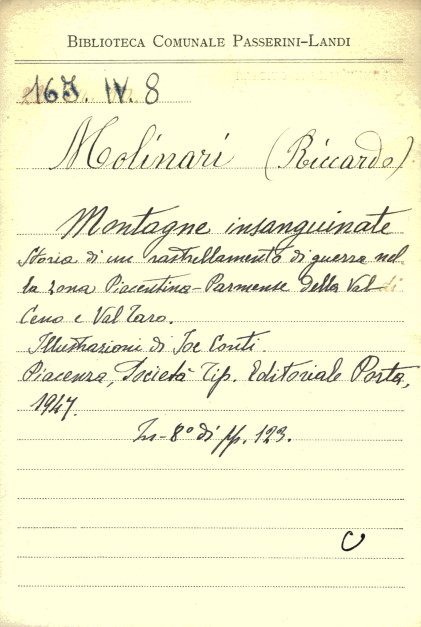 BIBLIOTECA COMUNALE PASSERINI-LANDI
16J. IV. 8
Molinari (Riccardo)
Montagne insanguinate
Storia di un rastrellamento di guerra nel-
la zona Piacentina-Parmense della Val di
Ceno e Val Taro.
Illustrazioni di Joe Conti.
Piacenza, Società Tip. Editoriale Porta,
1947.
In-8° di pp. 123.
C